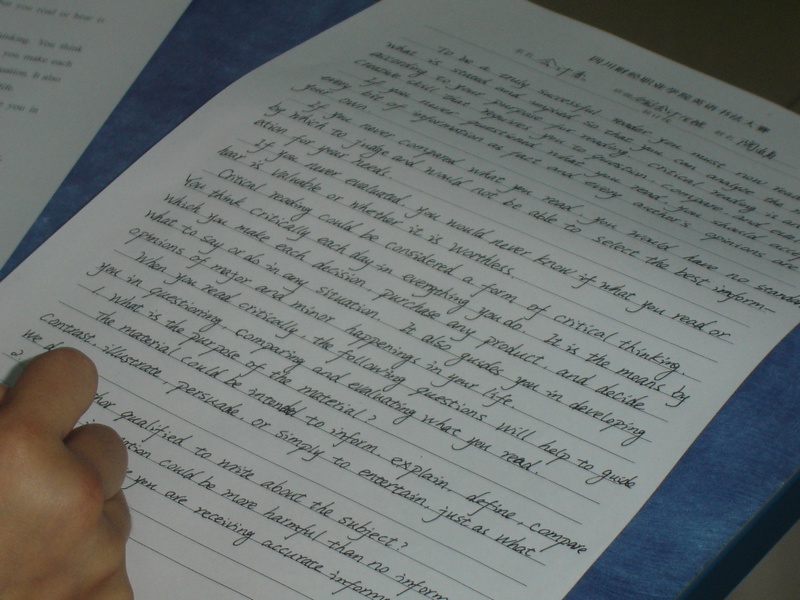 what you read or hear is
thinking. You think
you make each
situation. It also
life.
you in
四川财经职业学院英语书法大赛
To be a truly successful reader, you must now
what is stated and implied so that you can analyze the
according to your purpose for reading. Critical reading is an
creative skill that requires you to question, compare and
If you never questioned what you read, you should accept
every bit of information as fact and every author's opinions are
your own.
If you never compared what you read, you would have no standa
by which to judge and would not be able to select the best inform-
ation for your needs.
If you never evaluated, you would never know if what you read or
hear is valuable or whether it is worthless.
Critical reading could be considered a form of critical thinking.
You think critically each day in everything you do. It is the means by
which you make each decision, purchase any product, and decide
what to say or do in any situation. It also guides you in developing
opinions of major and minor happenings in your life.
When you read critically, the following questions will help to guide
you in questioning, comparing and evaluating what you read.
1. What is the purpose of the material?
the material could be intended to inform, explain, define, compare
contrast, illustrate, persuade, or simply to entertain, just as what
We d
2.
hor qualified to write about the subject?
tion could be more harmful than no inform
you are receiving accurate informa